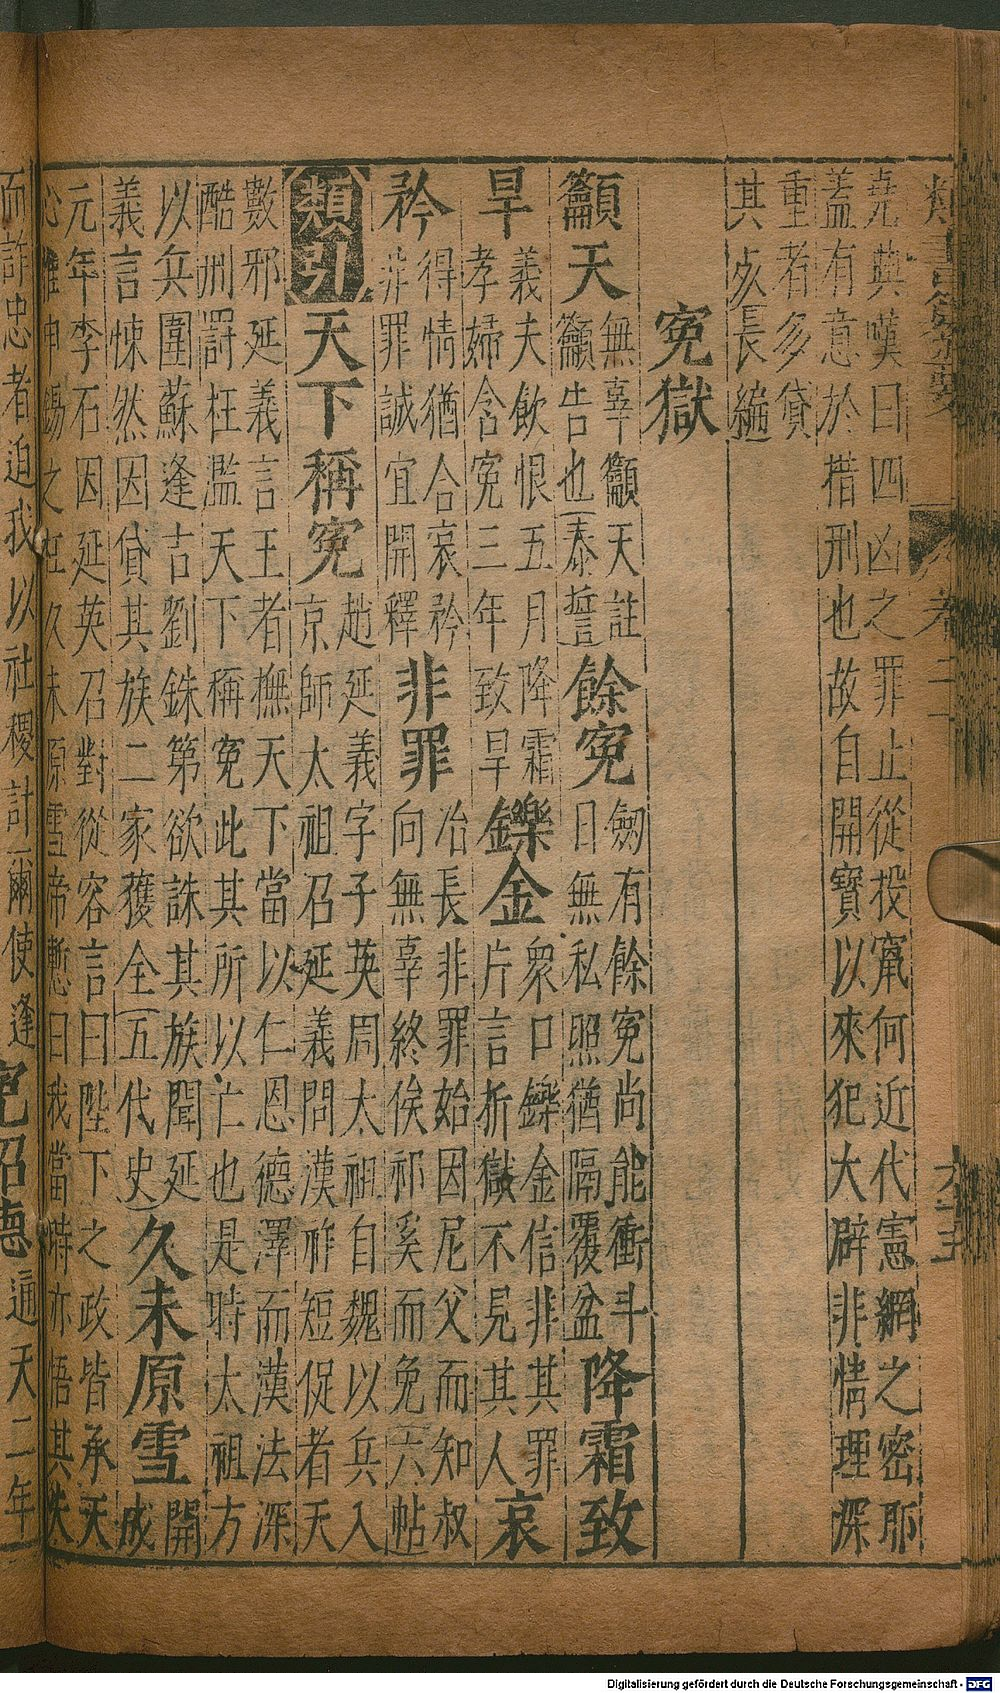 類書纂要 卷二十
堯典嘆曰四凶之罪止從投竄何近代憲網之密耶
蓋有意於措刑也故自開寶以來犯大辟非情理深
重者多貸
其死長編
冤獄
籲天 無辜籲天註籲告也(泰誓 餘冤 劍有餘冤尚能衝斗日無私照猶隔覆盆 降霜致
旱 義夫飲恨五月降霜孝婦含冤三年致旱 鑠金 衆口鑠金信非其罪片言折獄不見其人 哀
矜 得情猶合哀矜非罪誠宜開釋 非罪 冶長非罪始因尼父而知叔向無辜終俟祁奚而免六帖
類引 天下稱冤 趙延義字子英周太祖自魏以兵入京師太祖召延義問漢祚短促者天
數邪延義言王者撫天下當以仁恩德澤而漢法深
酷刑罰枉濫天下稱冤此其所以亡也是時太祖方
以兵圍蘇逢吉劉銖第欲誅其族聞延義言悚然因貸其族二家獲全(五代史) 久未原雪 開成
元年李石因延英召對從容言曰陛下之政皆承天
心惟申錫之冤久未原雪帝慙曰我當時亦悟其失
而詐忠者迫我以社稷計爾使逢 德 通天二年
Digitalisierung gefördert durch die Deutsche Forschungsgemeinschaft - DFG